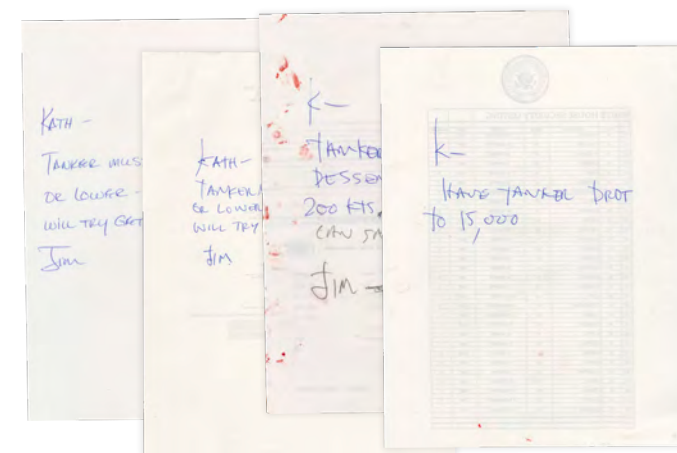 KATH —
TANKER MUS
OR LOWER —
WILL TRY GET
JIM
KATH —
TANKER
OR LOWER
WILL TRY
JIM
K—
TANKER
DESSEN
200 KTS,
CAN SA
JIM —
K—
HAVE TANKER DROT
TO 15,000